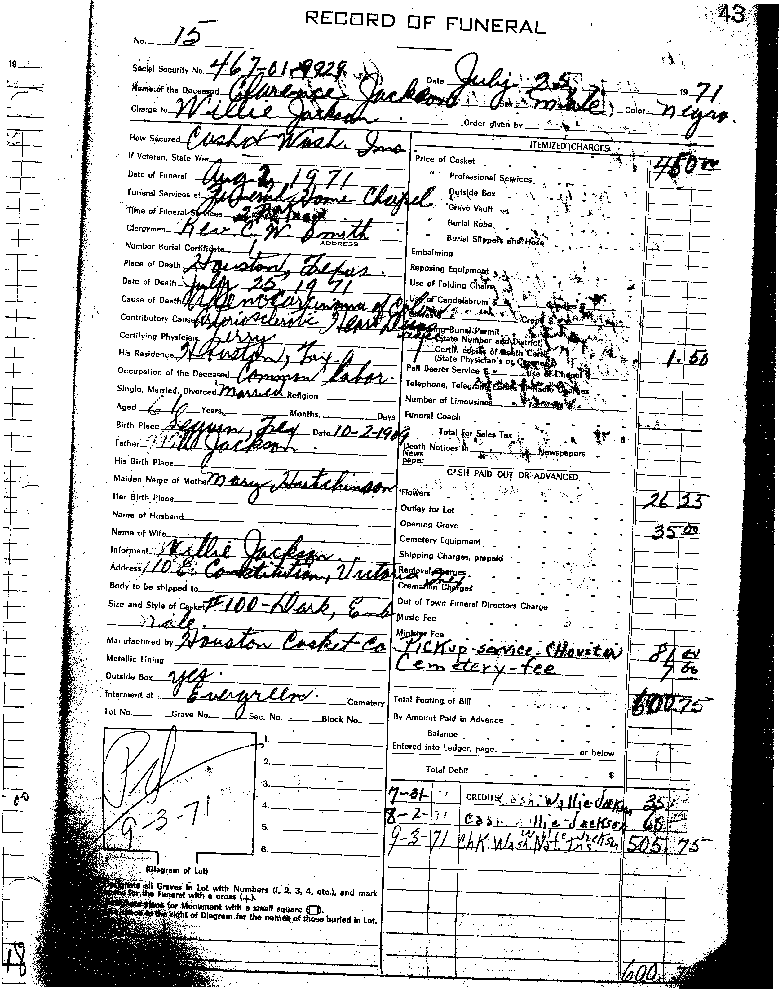 43
RECORD OF FUNERAL
No. 15
Social Security No. 467-01-9929
Date July 25, 1971
Name of the Deceased Clarence Jackson male Color negro.
Charge to Willie Jackson
Order given by
How Secured Cash & Wash. Ins
If Veteran, State War
Date of Funeral Aug 2, 1971
Funeral Services at Funeral Home Chapel
Time of Funeral Services
Clergyman Rev. C. W. Smith
ADDRESS
Number Burial Certificate
Place of Death Houston, Texas.
Date of Death July 25, 1971
Cause of Death Adenocarcinoma of Colon
Contributory Cause Heart Disease
Certifying Physician
His Residence Houston, Tex
Occupation of the Deceased Common labor
Single, Married, Divorced Married Religion
Aged 66 Years, Months, Days
Birth Place Seguin, Tex Date 10-2-1909
Father Jackson
His Birth Place
Maiden Name of Mother Mary Hutchinson
Her Birth Place
Name of Husband
Name of Wife
Informant Willie Jackson
Address 110 E. Constitution, Victoria Tex.
Body to be shipped to
Size and Style of Casket #100-Dark, Emb
Manufactured by Houston Casket Co
Metallic Lining
Outside Box yes.
Interment at Evergreen. Cemetery
Lot No. Grave No. Sec. No. Block No.
Pd
9-3-71
1.
2.
3.
4.
5.
6.
(Diagram of Lot)
all Graves in Lot with Numbers (1, 2, 3, 4, etc.), and mark
for the Funeral with a cross (+).
place for Monument with a small square
at the right of Diagram for the names of those buried in Lot.
ITEMIZED CHARGES
Price of Casket 450 00
" Professional Services
" Outside Box
" Grave Vault
" Burial Robe
" Burial Slippers and Hose
Embalming
Reposing Equipment
Use of Folding Chairs
Use of Candelabrum
Burial Permit
State Number and District
Certif. copies of Death Cert.
(State Physician's or Coroner's) 1.50
Pall Bearer Service
Telephone, Telegram
Number of Limousines
Funeral Coach
Total For Sales Tax
Death Notices in Newspapers
News paper
CASH PAID OUT OR ADVANCED
Flowers 26 25
Outlay for Lot
Opening Grave 35 00
Cemetery Equipment
Shipping Charges, prepaid
Removal Charges
Cremation Charges
Out of Town Funeral Directors Charge
Music Fee
Minister Fee
Pickup-service-(Houston 81 00
Cemetery-fee 7 00
Total Footing of Bill 600.75
By Amount Paid in Advance
Balance
Entered into Ledger, page or below
Total Debit $
7-31 CREDITS Cash: Willie Jackson 35
8-2-71 Cash Willie-Jackson 60
9-3 71 Chk Wash Nat Ins 505 75
600
18